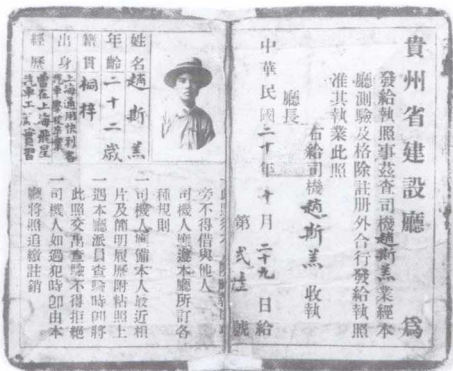 貴州省建設廳 為
發給執照事茲查司機趙斯羔業經本
廳測驗及格除註冊外合行發給執照
准其執業此照
右給司機趙斯羔收執
廳長
中華民國二十年十月二十九日給
第 貳 號
姓名 趙斯羔
年齡 二十二歲
籍貫 桐梓
出身 上海通用快利
汽車學校畢業
經歷 曾在上海飛星
汽車工廠實習
旁不得借與他人
一司機人應遵本廳所訂各
種規則
一司機人應備本人最近相
片及簡明履歷附粘照上
一遇本廳派員查驗時即將
此照交出查驗不得拒絕
一司機人如遇犯時即由本
廳將照追繳註銷